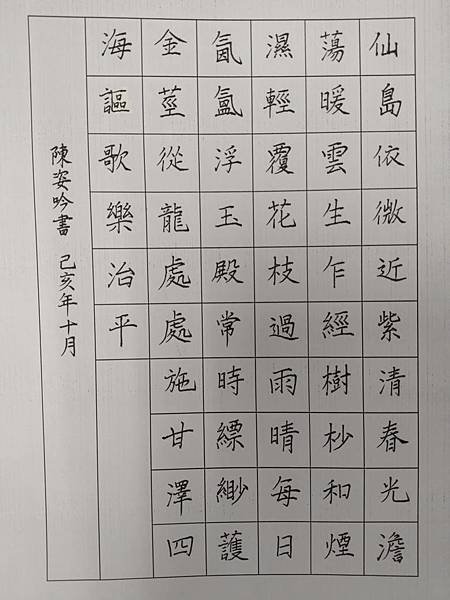 仙島依微近紫清春光澹
蕩暖雲生乍經樹杪和煙
濕輕覆花枝過雨晴每日
氤氳浮玉殿常時縹緲護
金莖從龍處處施甘澤四
海謳歌樂治平
陳姿吟書 己亥年十月